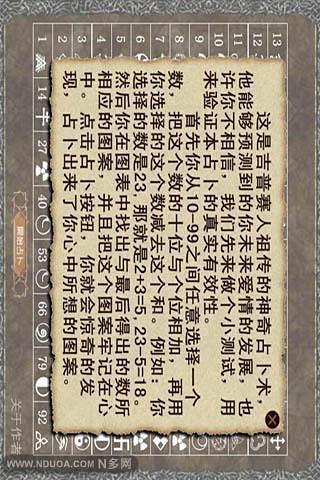 1 2 3 4 5 6 7 8 9 10 11 12 13
14
27
40
53
66
79
92
这是吉普赛人祖传的神奇占卜术，
他能够预测到的你未来爱情的发展，也
许你不相信，我们先来做个小测试，用
来验证本占卜的真实有效性。
首先你从10-99之间任意选择一个
数，把这个数的十位与个位相加，再用
你选择的这个数减去这个和。例如：你
选择的数是23，那就是2+3=5，23-5=18。
然后你在图表中找出与最后得出的数所
相应的图案，并且把这个图案牢记在心
中。点击占卜按钮，你就会惊奇的发
现，占卜出来了你心中所想的图案。
关于作者
WWW.NDUOA.COM N多网